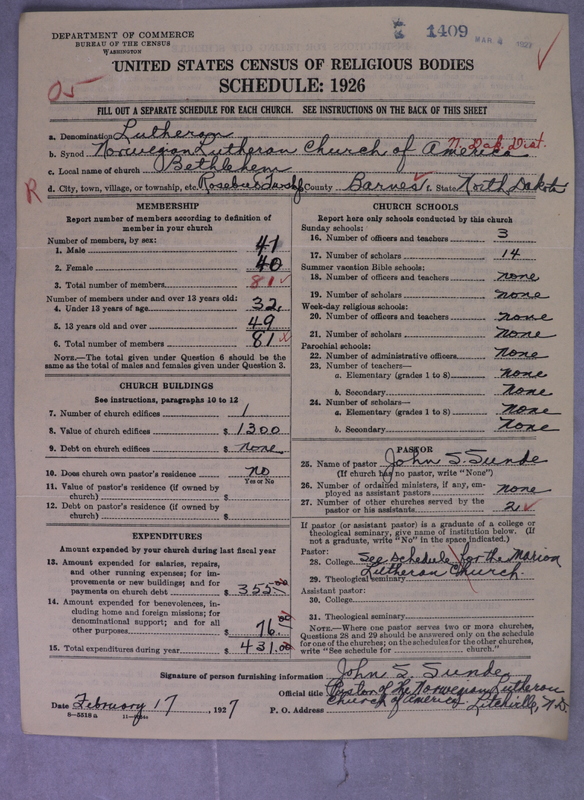 DEPARTMENT OF COMMERCE
BUREAU OF THE CENSUS
WASHINGTON
1409
MAR 8 1927
UNITED STATES CENSUS OF RELIGIOUS BODIES
SCHEDULE: 1926
05
FILL OUT A SEPARATE SCHEDULE FOR EACH CHURCH. SEE INSTRUCTIONS ON THE BACK OF THIS SHEET
a. Denomination Lutheran
b. Synod Norwegian Lutheran Church of America N. Dak. Dist.
c. Local name of church Bethlehem
R d. City, town, village, or township, etc. Rosebud Twnshp County Barnes f. State North Dakota
MEMBERSHIP
Report number of members according to definition of
member in your church
Number of members, by sex:
1. Male 41
2. Female 40
3. Total number of members 81
Number of members under and over 13 years old:
4. Under 13 years of age 32
5. 13 years old and over 49
6. Total number of members 81
NOTE.—The total given under Question 6 should be the
same as the total of males and females given under Question 3.
CHURCH BUILDINGS
See instructions, paragraphs 10 to 12
7. Number of church edifices 1
8. Value of church edifices $ 1300
9. Debt on church edifices $ none
10. Does church own pastor's residence no
Yes or No
11. Value of pastor's residence (if owned by
church) $
12. Debt on pastor's residence (if owned by
church) $
EXPENDITURES
Amount expended by your church during last fiscal year
13. Amount expended for salaries, repairs,
and other running expenses; for im-
provements or new buildings; and for
payments on church debt $ 355.00
14. Amount expended for benevolences, in-
cluding home and foreign missions; for
denominational support; and for all
other purposes $ 76.00
15. Total expenditures during year $ 431.00
CHURCH SCHOOLS
Report here only schools conducted by this church
Sunday schools:
16. Number of officers and teachers 3
17. Number of scholars 14
Summer vacation Bible schools:
18. Number of officers and teachers none
19. Number of scholars none
Week-day religious schools:
20. Number of officers and teachers none
21. Number of scholars none
Parochial schools:
22. Number of administrative officers none
23. Number of teachers—
a. Elementary (grades 1 to 8) none
b. Secondary none
24. Number of scholars—
a. Elementary (grades 1 to 8) none
b. Secondary none
PASTOR
25. Name of pastor John S. Sunde
(If church has no pastor, write "None")
26. Number of ordained ministers, if any, em-
ployed as assistant pastors none
27. Number of other churches served by the
pastor or his assistants 2
If pastor (or assistant pastor) is a graduate of a college or
theological seminary, give name of institution below. (If
not a graduate, write "No" in the space indicated.)
Pastor:
28. College See schedule for the Marion
Lutheran Church.
29. Theological seminary
Assistant pastor:
30. College
31. Theological seminary
NOTE.—Where one pastor serves two or more churches,
Questions 28 and 29 should be answered only on the schedule
for one of the churches; on the schedules for the other churches,
write "See schedule for church."
Signature of person furnishing information John S. Sunde
Official title Pastor of the Norwegian Lutheran
Church of America
Date February 17, 1927 P. O. Address Litchville, N.D.
8—5318 a